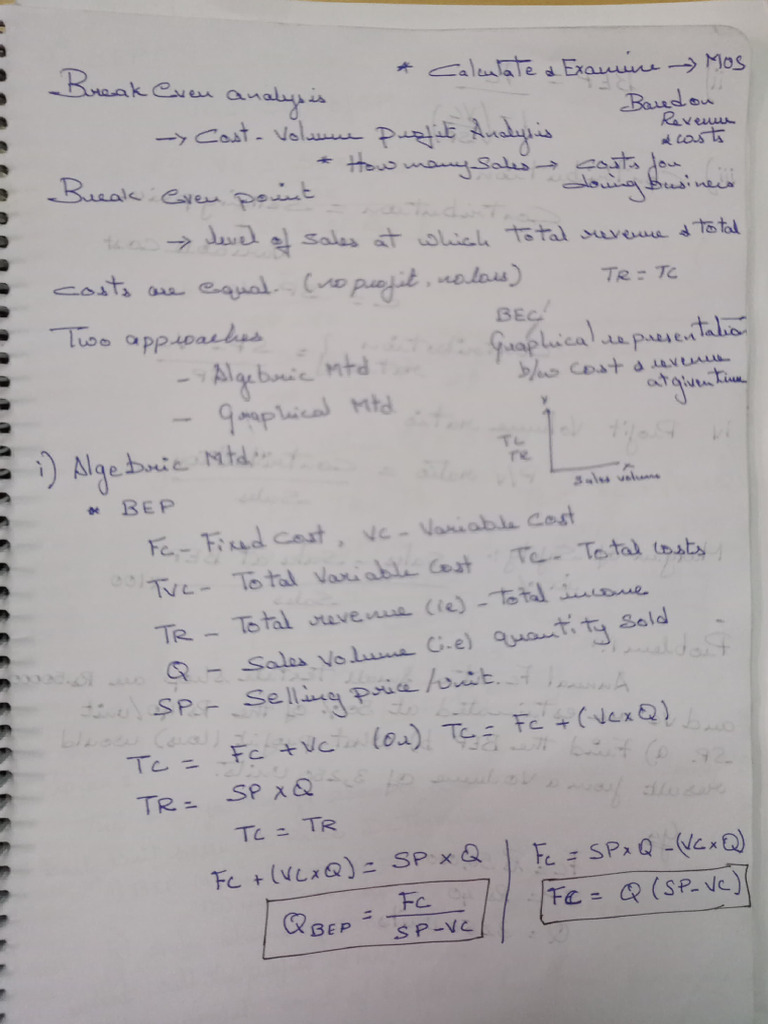 * Calculate & Examine → MOS
Break Even analysis
Based on
Revenue
& costs
→ Cost - Volume Profit Analysis
* How many Sales → costs for
doing business
Break Even point
→ level of sales at which Total revenue & Total
costs are equal. (no profit, no loss) TR = TC
Two approaches
- Algebric Mtd
- Graphical Mtd
BEC
Graphical representation
b/w cost & revenue
at given time
Y
TC
TR
X
Sales volume
i) Algebric Mtd:
* BEP
FC - Fixed Cost, VC - Variable Cost
TVC - Total Variable Cost TC - Total costs
TR - Total revenue (ie) - Total income
Q - Sales volume (i.e) quantity sold
SP - Selling price / unit.
TC = FC + VC (Or) TC = FC + (VC x Q)
TR = SP x Q
TC = TR
FC + (VC x Q) = SP x Q
QBEP = FC / SP - VC
FC = SP x Q - (VC x Q)
FC = Q (SP - VC)